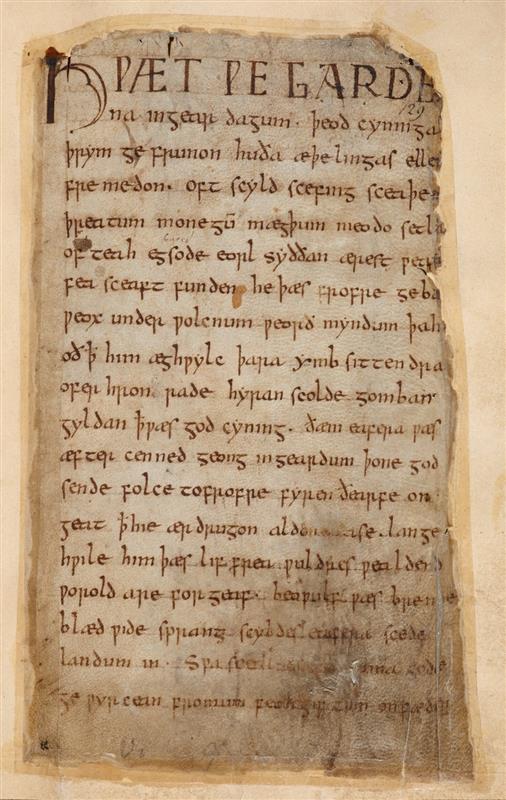 HǷÆT ǷE GARDE
129
na ingear dagum. þeod cyninga
þrym ge frunon huða æþelingas elle
fre medon. oft scyld scefing sceaþe
þreatum monegū mægþum meodo setla
of teah egsode eorl syððan ærest ƿear
fea sceaft funden he þæs frofre geba
ƿeox under ƿolcnum ƿeorð myndum þah
oð ꝥ him æghƿylc þara ymb sittendra
ofer hron rade hyran scolde gomban
gyldan ꝥ ƿæs god cyning. ðæm eafera ƿæs
æfter cenned geong ingeardum þone god
sende folce tofrofre fyren ðearfe on
geat ꝥ hie ær drugon lange
hƿile him þæs lif frea ƿuldres ƿealdend
ƿorold are for geaf. beoƿulf ƿæs breme
blæd ƿide sprang scyldes eafera scede
landum in. Sƿa sceal guma gode
ge ƿyrcean fromum feoh giftum on fæder